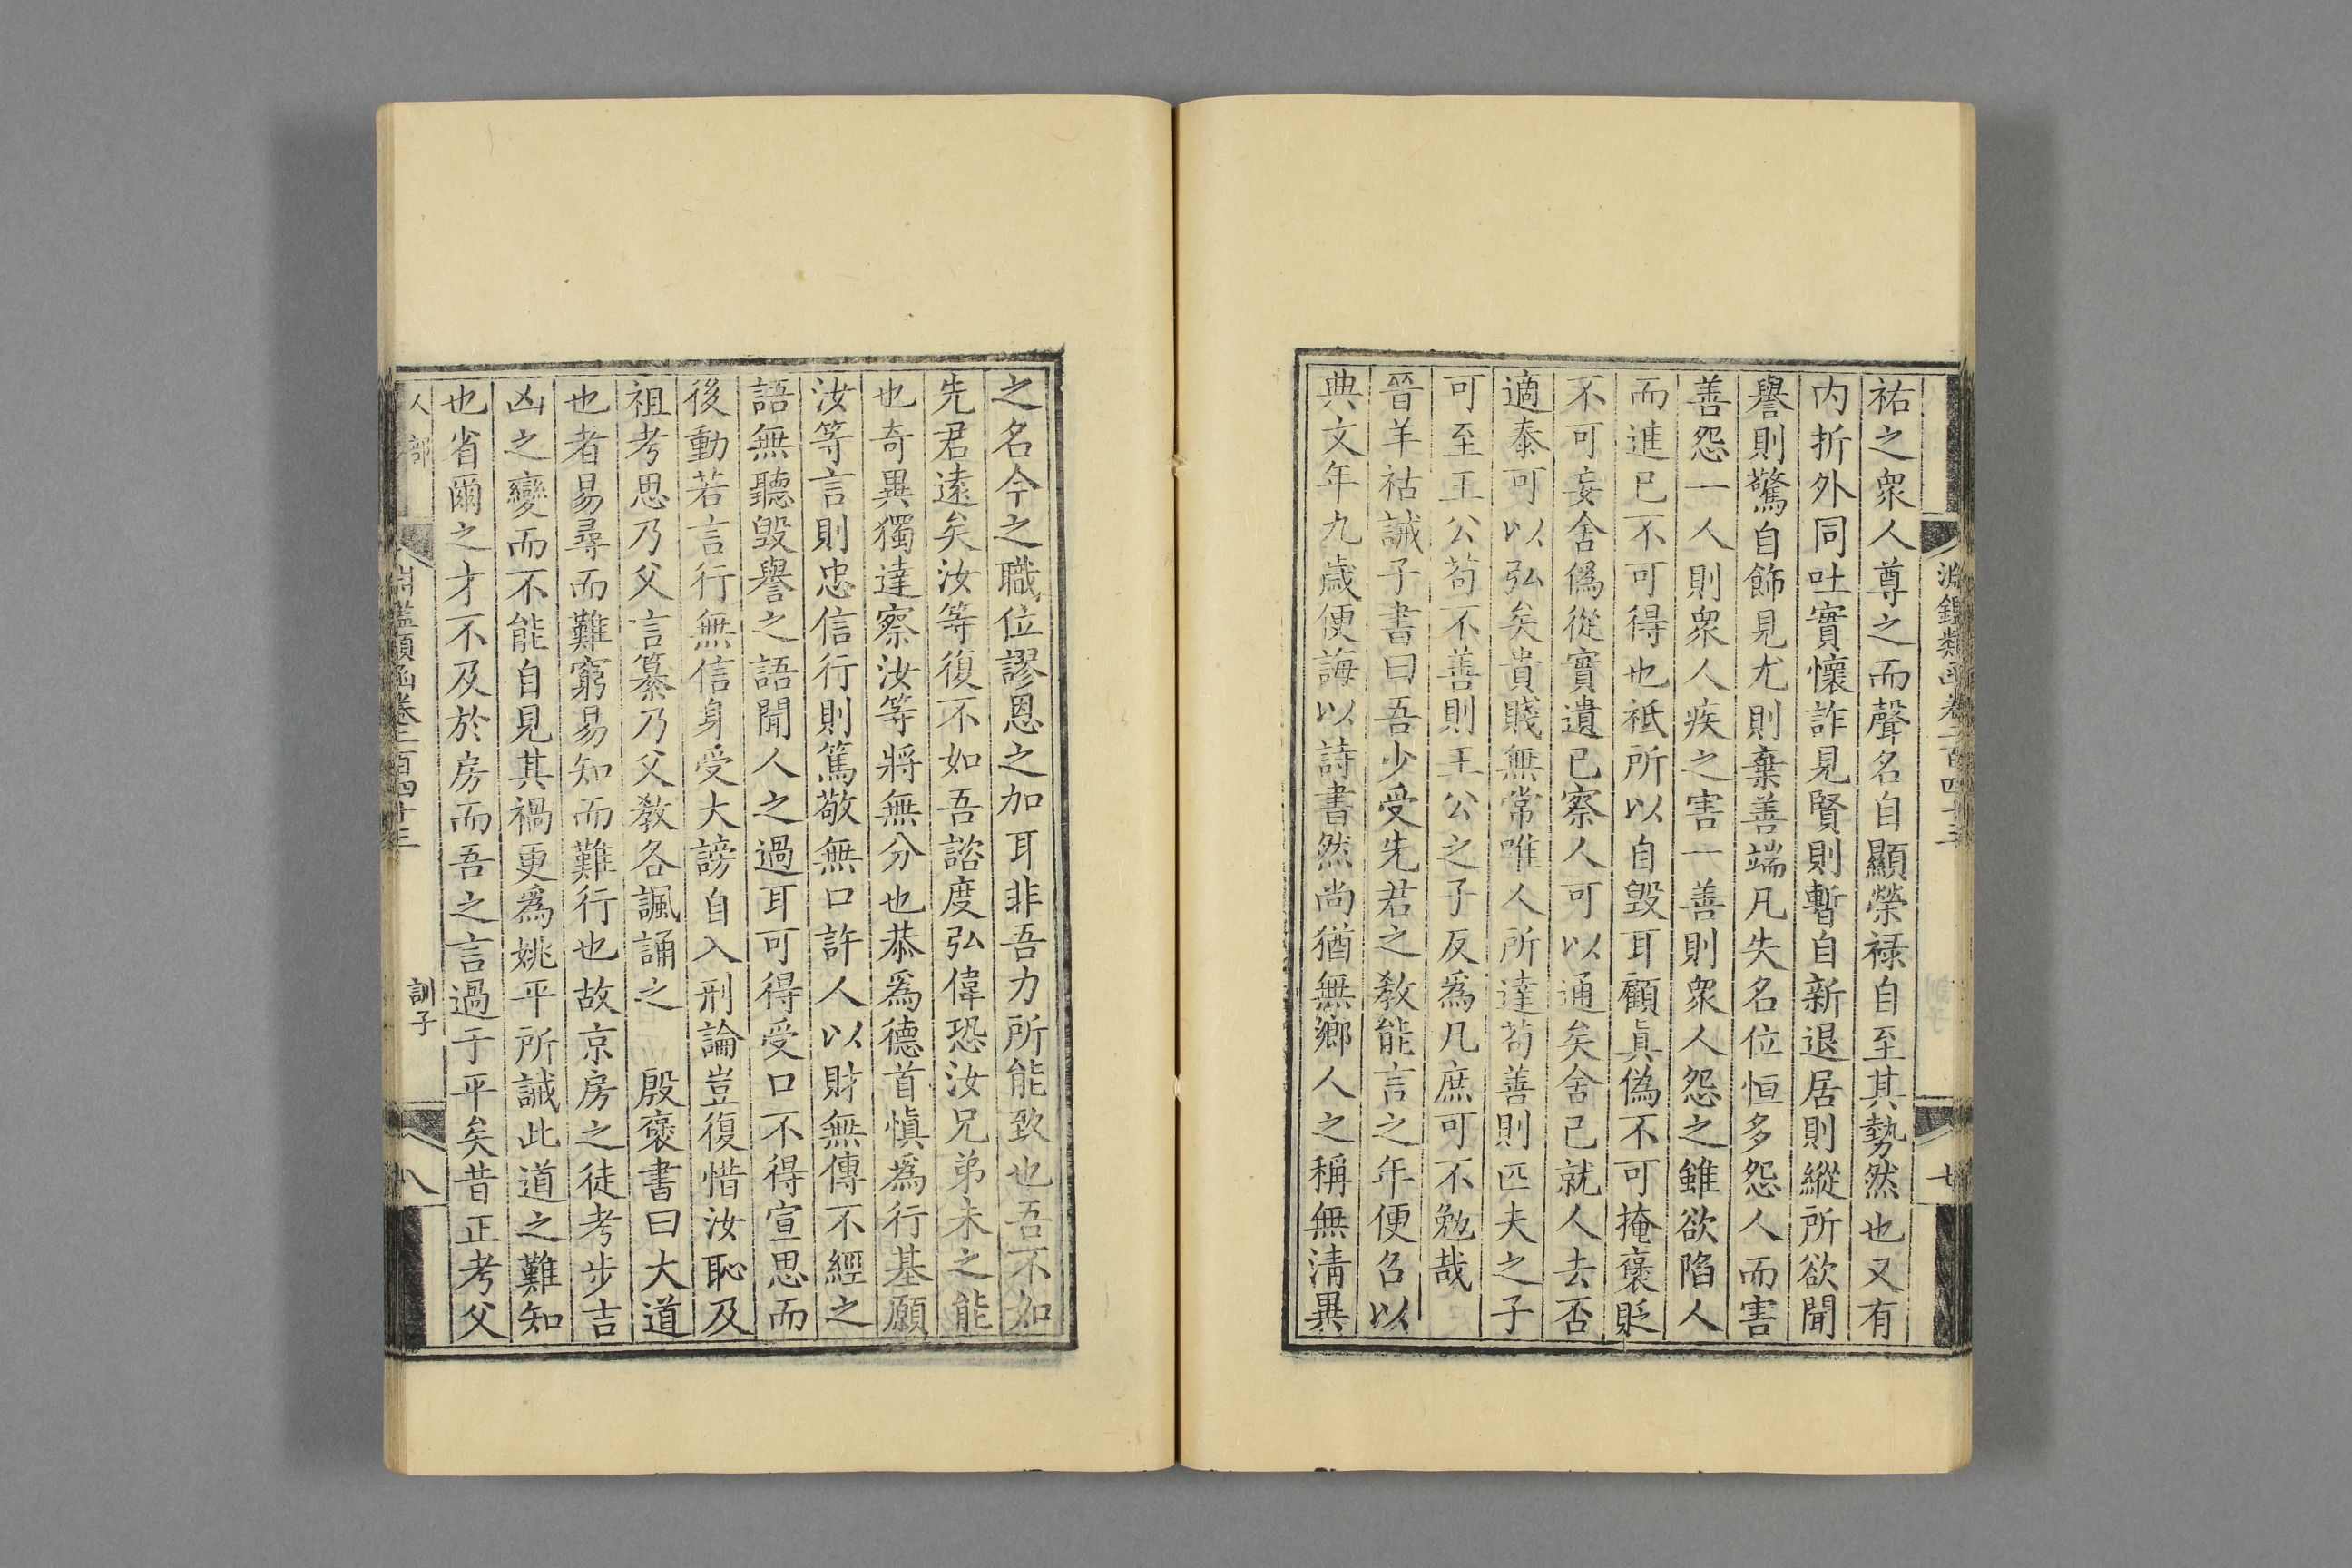 淵鑑類函卷二百四十三
七
祐之衆人尊之而聲名自顯榮祿自至其勢然也又有
内折外同吐實懷詐見賢則暫自新退居則縱所欲聞
譽則驚自飾見尤則棄善端凡失名位恒多怨人而害
善怨一人則衆人疾之害一善則衆人怨之雖欲陷人
而進已不可得也祗所以自毀耳顧眞偽不可掩褒貶
不可妄舍僞從實遺已察人可以通矣舍己就人去否
適泰可以弘矣貴賤無常唯人所達苟善則匹夫之子
可至王公苟不善則王公之子反爲凡庶可不勉哉
晉羊祜誡子書曰吾少受先君之教能言之年便召以
典文年九歲便誨以詩書然尚猶無鄉人之稱無淸異
之名今之職位謬恩之加耳非吾力所能致也吾不如
先君遠矣汝等復不如吾諮度弘偉恐汝兄弟未之能
也奇異獨達察汝等將無分也恭爲德首愼爲行基願
汝等言則忠信行則篤敬無口許人以財無傳不經之
語無聽毀譽之語聞人之過耳可得受口不得宣思而
後動若言行無信身受大謗自入刑論豈復惜汝恥及
祖考思乃父言纂乃父教各諷誦之　殷褒書曰大道
也者易尋而難窮易知而難行也故京房之徒考步吉
凶之變而不能自見其禍更爲姚平所誡此道之難知
也省爾之才不及於房而吾之言過于平矣昔正考父
人部
淵鑑類函卷二百四十三
訓子
八